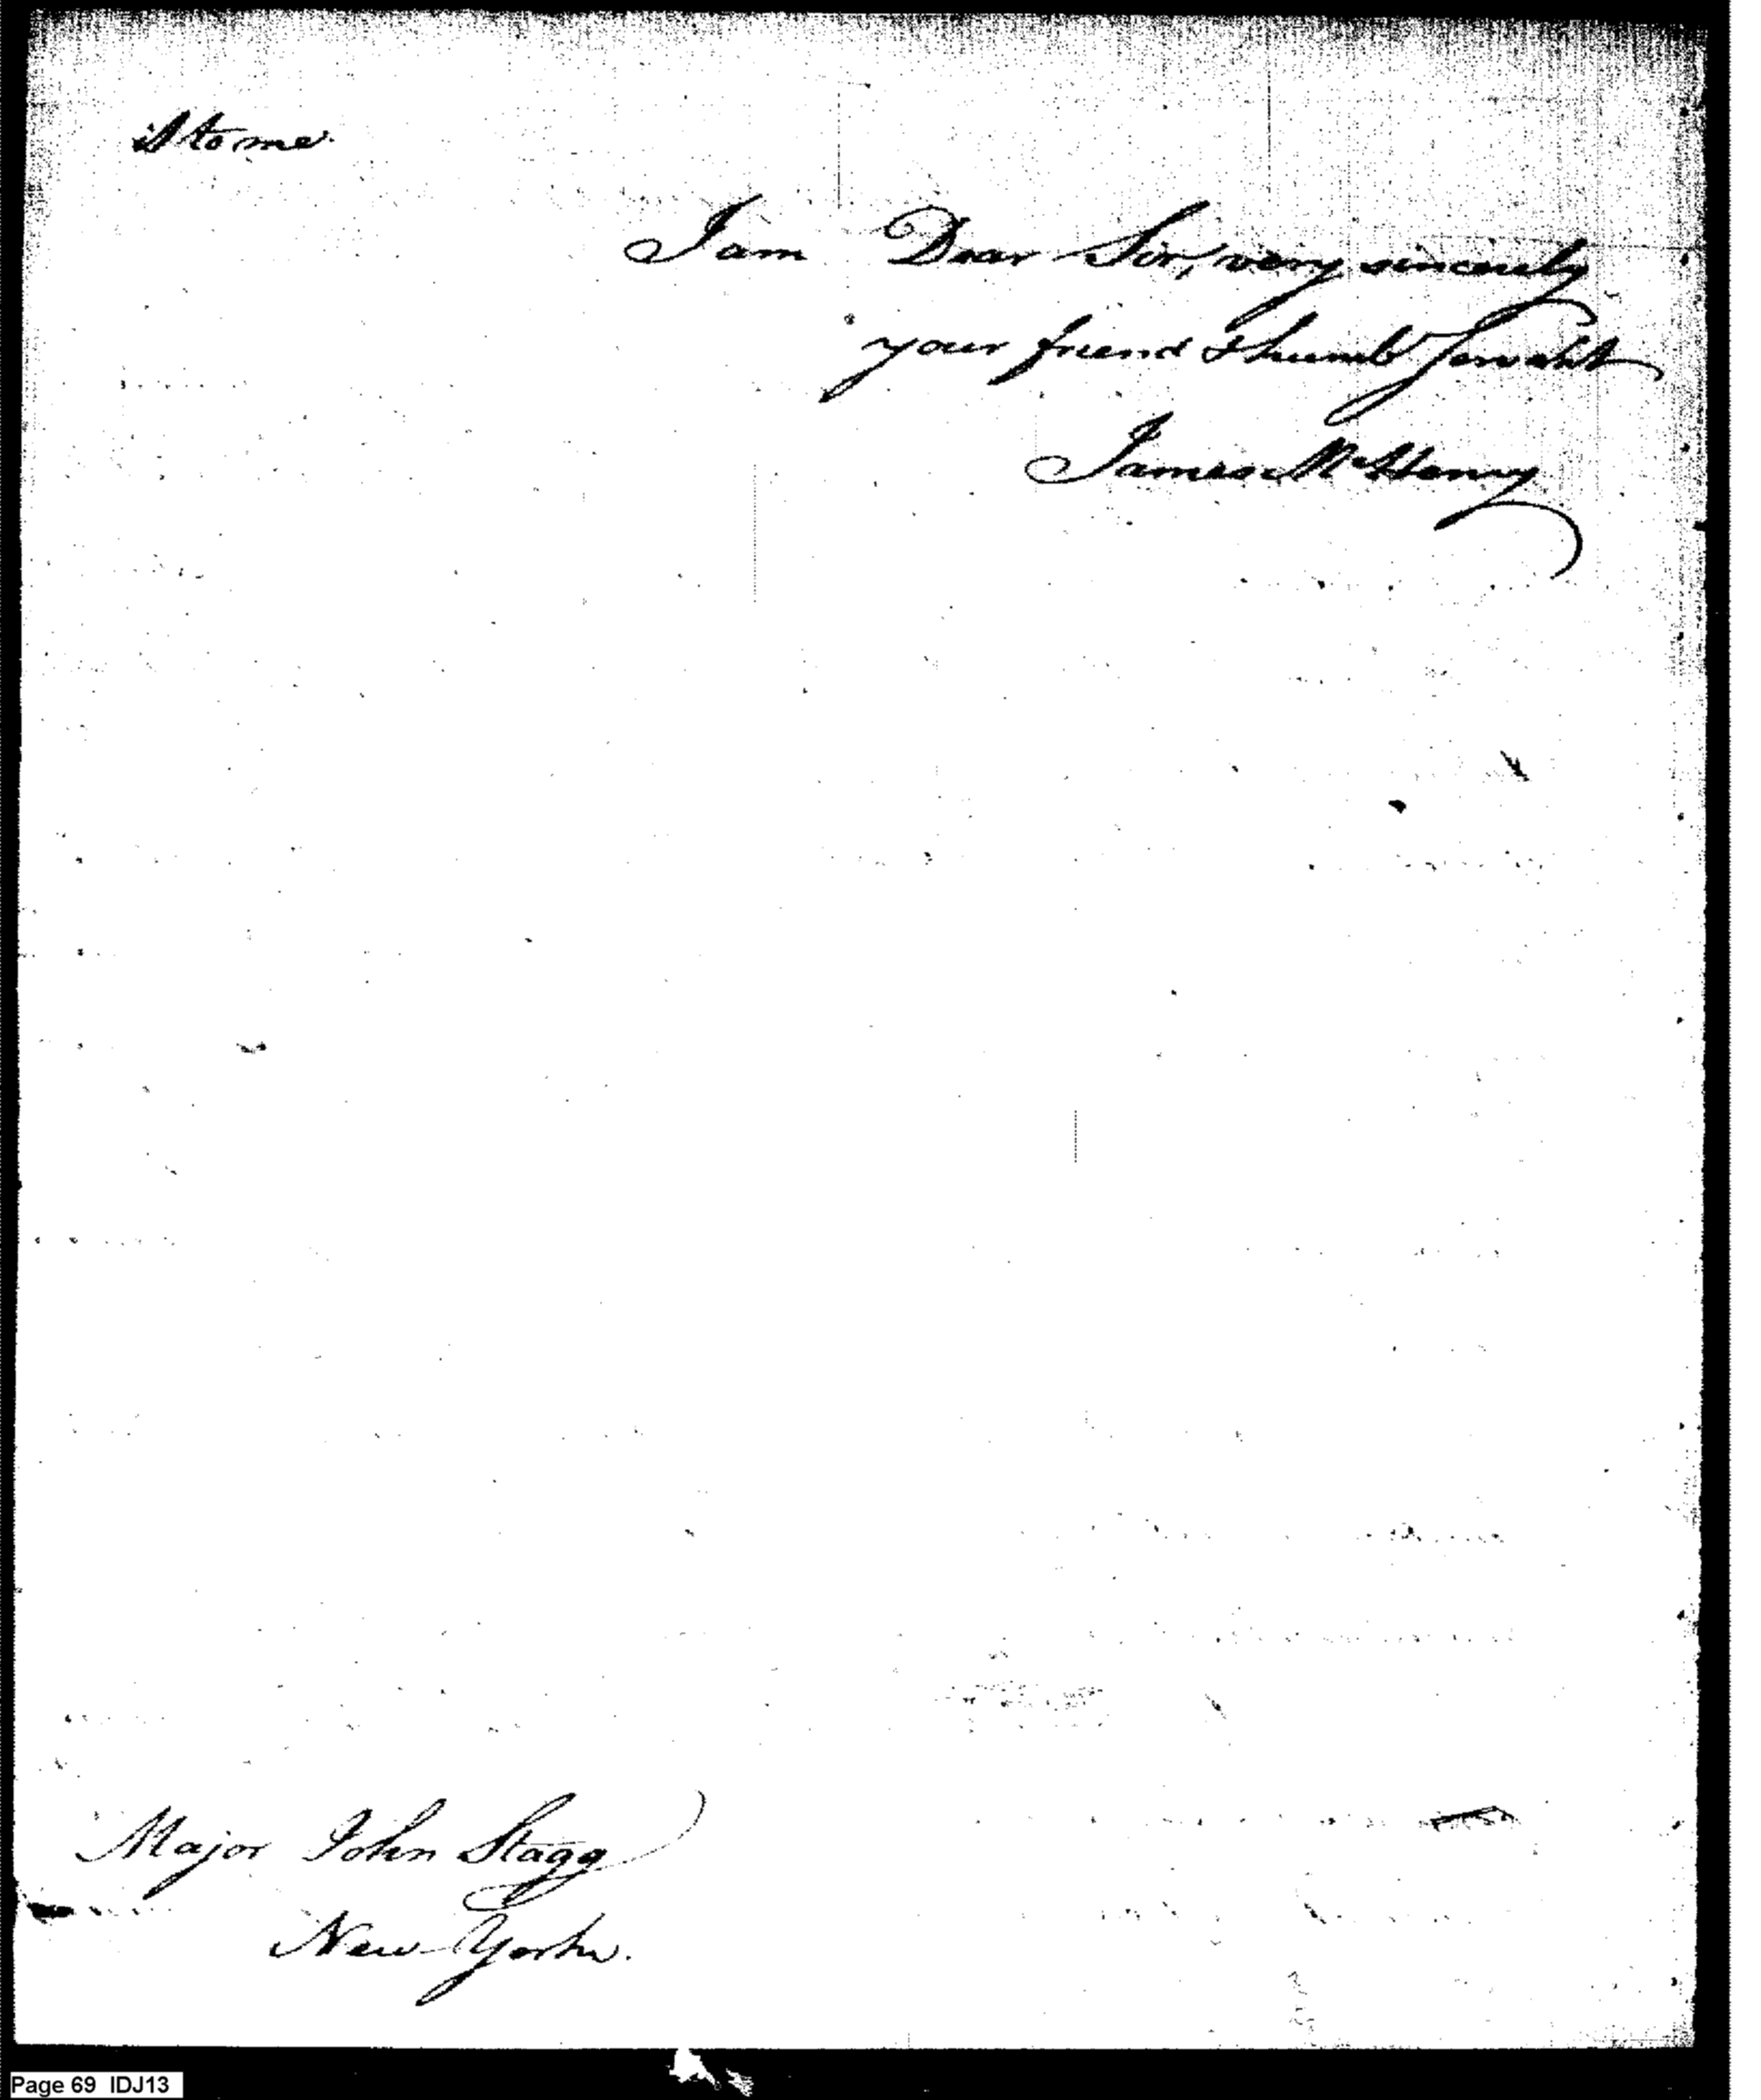 it to me
I am Dear Sir, very sincerely
your friend & humb Servant
James McHenry
Major John Stagg
New York.
Page 69 IDJ13